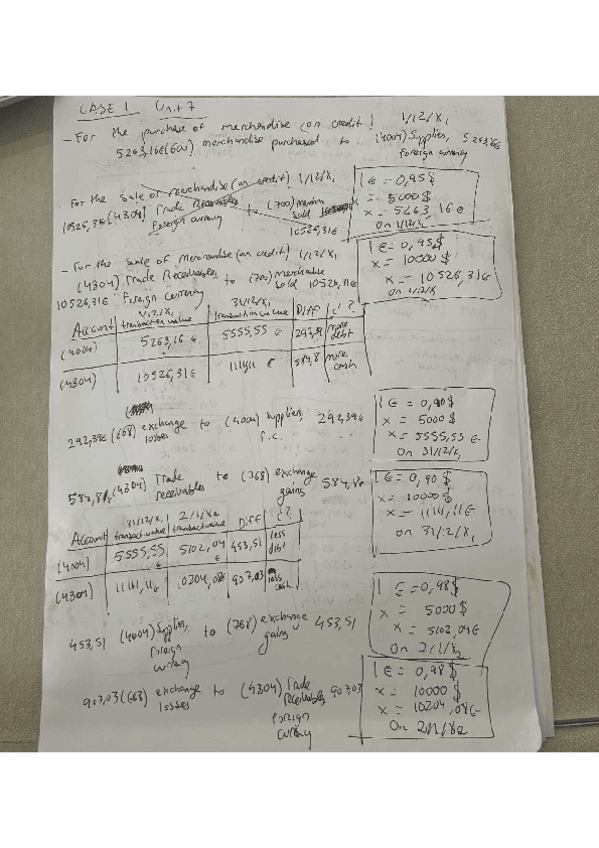 CASE 1 Unit 7
- For the purchase of merchandise (on credit) 1/12/X1
5263,16€ (600) merchandise purchased to (4004) Suppliers, 5263,16€
foreign currency
1€ = 0,95$
x = 5000$
x = 5263,16€
on 1/12/X1
- For the sale of merchandise (on credit) 1/12/X1
10526,31€ (4304) Trade Receivables to (700) merchandise
foreign currency sold
10526,31€
- For the sale of merchandise (on credit) 1/12/X1
(4304) Trade Receivables, to (700) merchandise
10526,31€ foreign currency sold 10526,31€
1€ = 0,95$
x = 10000$
x = 10526,31€
on 1/12/X1
1/12/X1 31/12/X1
Account transaction value transaction value Diff ¿?
(4004) 5263,16€ 5555,55€ 292,39 more debt
(4304) 10526,31€ 11111,11€ 584,8 more cash
292,39€ (668) exchange to (4004) suppliers, 292,39€
losses f.c.
1€ = 0,90$
x = 5000$
x = 5555,55€
on 31/12/X1
584,8€ (4304) Trade to (768) exchange 584,8€
receivables gains
1€ = 0,90$
x = 10000$
x = 11111,11€
on 31/12/X1
31/12/X1 2/1/X2
Account transact value transact value Diff ¿?
(4004) 5555,55€ 5102,04€ 453,51 less debt
(4304) 11111,11€ 10204,08€ 907,03 less cash
453,51 (4004) Suppliers, to (768) exchange 453,51
foreign gains
currency
1€ = 0,98$
x = 5000$
x = 5102,04€
on 2/1/X2
907,03 (668) exchange to (4304) Trade 907,03
losses receivables
foreign
currency
1€ = 0,98$
x = 10000$
x = 10204,08€
on 2/1/X2